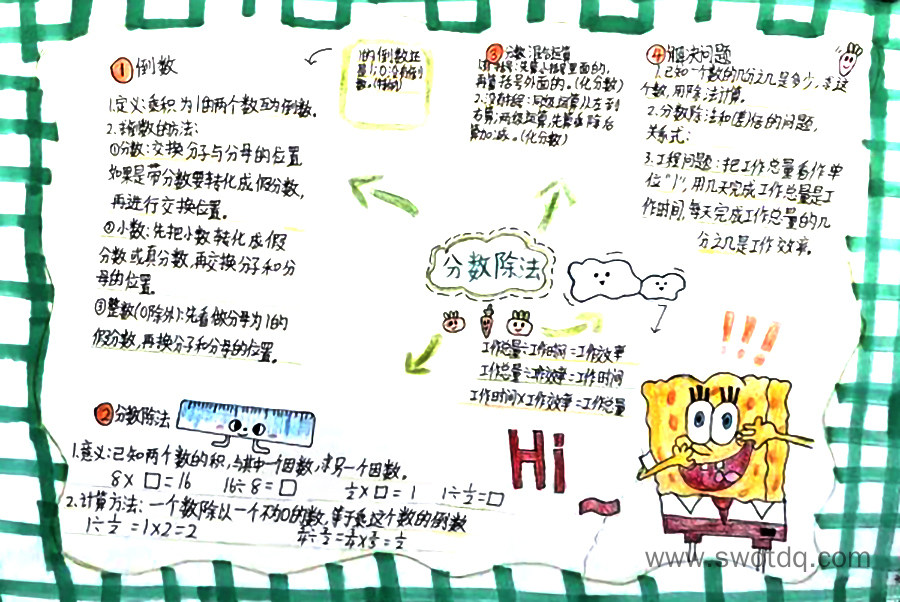 ①倒数
1.定义:乘积为1的两个数互为倒数。
2.找倒数的方法:
①分数:交换分子与分母的位置
如果是带分数要转化成假分数,
再进行交换位置。
②小数:先把小数转化成假
分数或真分数,再交换分子和分
母的位置。
③整数(0除外):先看做分母为1的
假分数,再换分子和分母的位置。
1的倒数还
是1;0没有倒
数。(特例)
③分数混合运算
再算括号外面的。(化分数)
2.没有括号:同级运算从左到
右算;两级运算,先算乘除后
算加减。(化分数)
④解决问题
1.已知一个数的几分之几是多少,求这
个数,用除法计算。
2.分数除法和(差)倍的问题,
关系式:
3.工程问题:把工作总量看作单
位"1",用几天完成工作总量是工
作时间,每天完成工作总量的几
分之几是工作效率。
分数除法
工作总量÷工作时间=工作效率
工作总量÷工作效率=工作时间
工作时间×工作效率=工作总量
②分数除法
1.意义:已知两个数的积,与其中一个因数,求另一个因数。
8×□=16 16÷8=□ 1/2×□=1 1÷1/2=□
2.计算方法:一个数除以一个不为0的数,等于乘这个数的倒数
1÷1/2=1×2=2
Hi
!!!
www.swqtdq.com